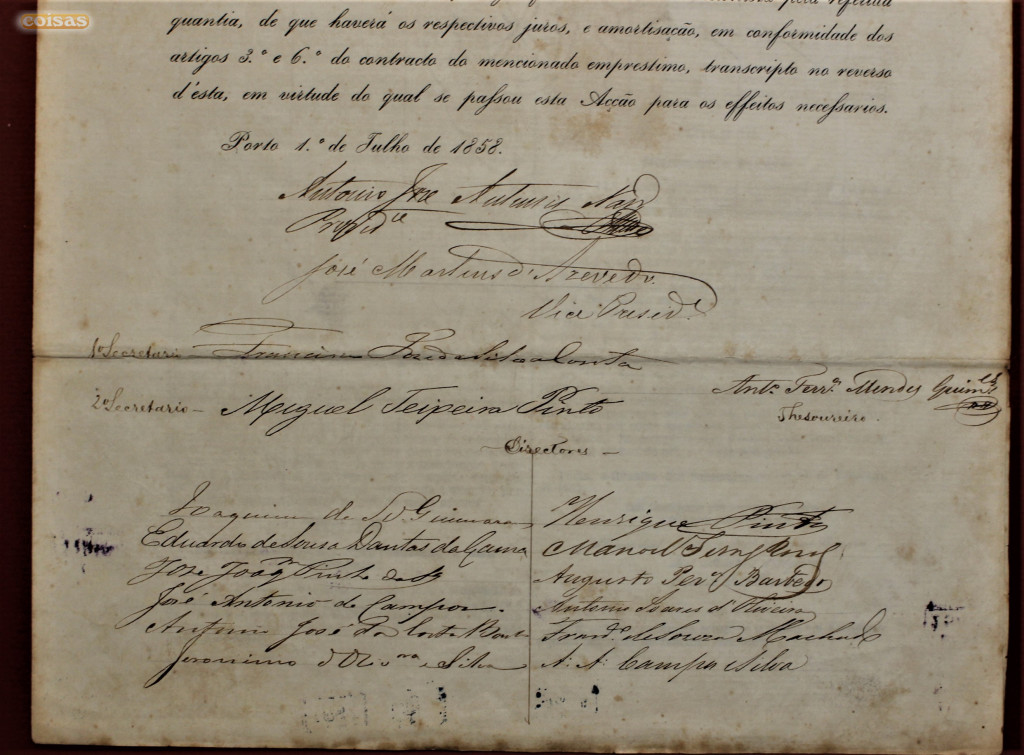 coisas
quantia, de que haverá os respectivos juros, e amortisação, em conformidade dos
artigos 3.º e 6.º do contracto do mencionado emprestimo, transcripto no reverso
d'ésta, em virtude do qual se passou esta Acção para os effeitos necessarios.
Porto 1.º de Julho de 1858.
Antonio Joze Antunes
Presid.te
José Martins d'Azevedo
Vice Presid.e
1º Secretario Francisco Costa
Ant.º Ferr.ª Mendes Guim.es
2º Secretario - Miguel Teixeira Pinto
Thesoureiro.
Directores
Joaquim de Guimarães
Henrique Pinto
Eduardo de Sousa Dantas da Gama
Manoel
Joze Joaq.m Pinto da S.ª
Augusto Per.ª Barbedo
José Antonio de Campos.
Antonio Soares d'Oliveira
Antonio José da Costa
Fran.co de Souza Machado
Jeronimo d'Oliv.ra e Silva
A. A. Campos Silva